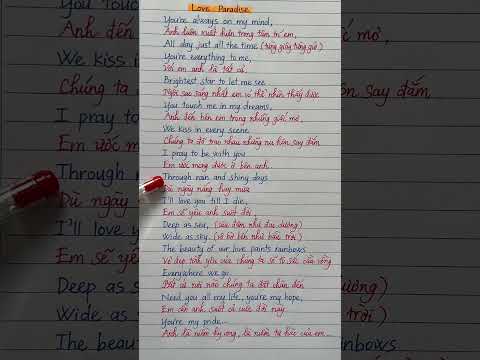 Love Paradise
You're always on my mind,
Anh luôn xuất hiện trong tâm trí em,
All day just all the time (từng giây từng giờ)
You're everything to me,
Với em anh là tất cả,
Brightest star to let me see
Ngôi sao sáng nhất em có thể nhìn thấy được
You touch me in my dreams,
Anh đến bên em trong những giấc mơ,
We kiss in every scene
Chúng ta đã trao nhau những nụ hôn say đắm
I pray to be with you
Em ước mong được ở bên anh
Through rain and shiny days
Dù ngày nắng hay mưa
I'll love you till I die,
Em sẽ yêu anh suốt đời
Deep as sea, (sâu như đại dương)
Wide as sky, (vô bờ bến như bầu trời)
The beauty of our love paints rainbows
Vẻ đẹp tình yêu của chúng ta sẽ tô sắc cầu vồng
Everywhere we go
Bất cứ nơi nào chúng ta đặt chân đến
Need you all my life, you're my hope,
Em cần anh suốt cả cuộc đời này
You're my pride...
Anh là niềm hy vọng, là niềm tự hào của em...